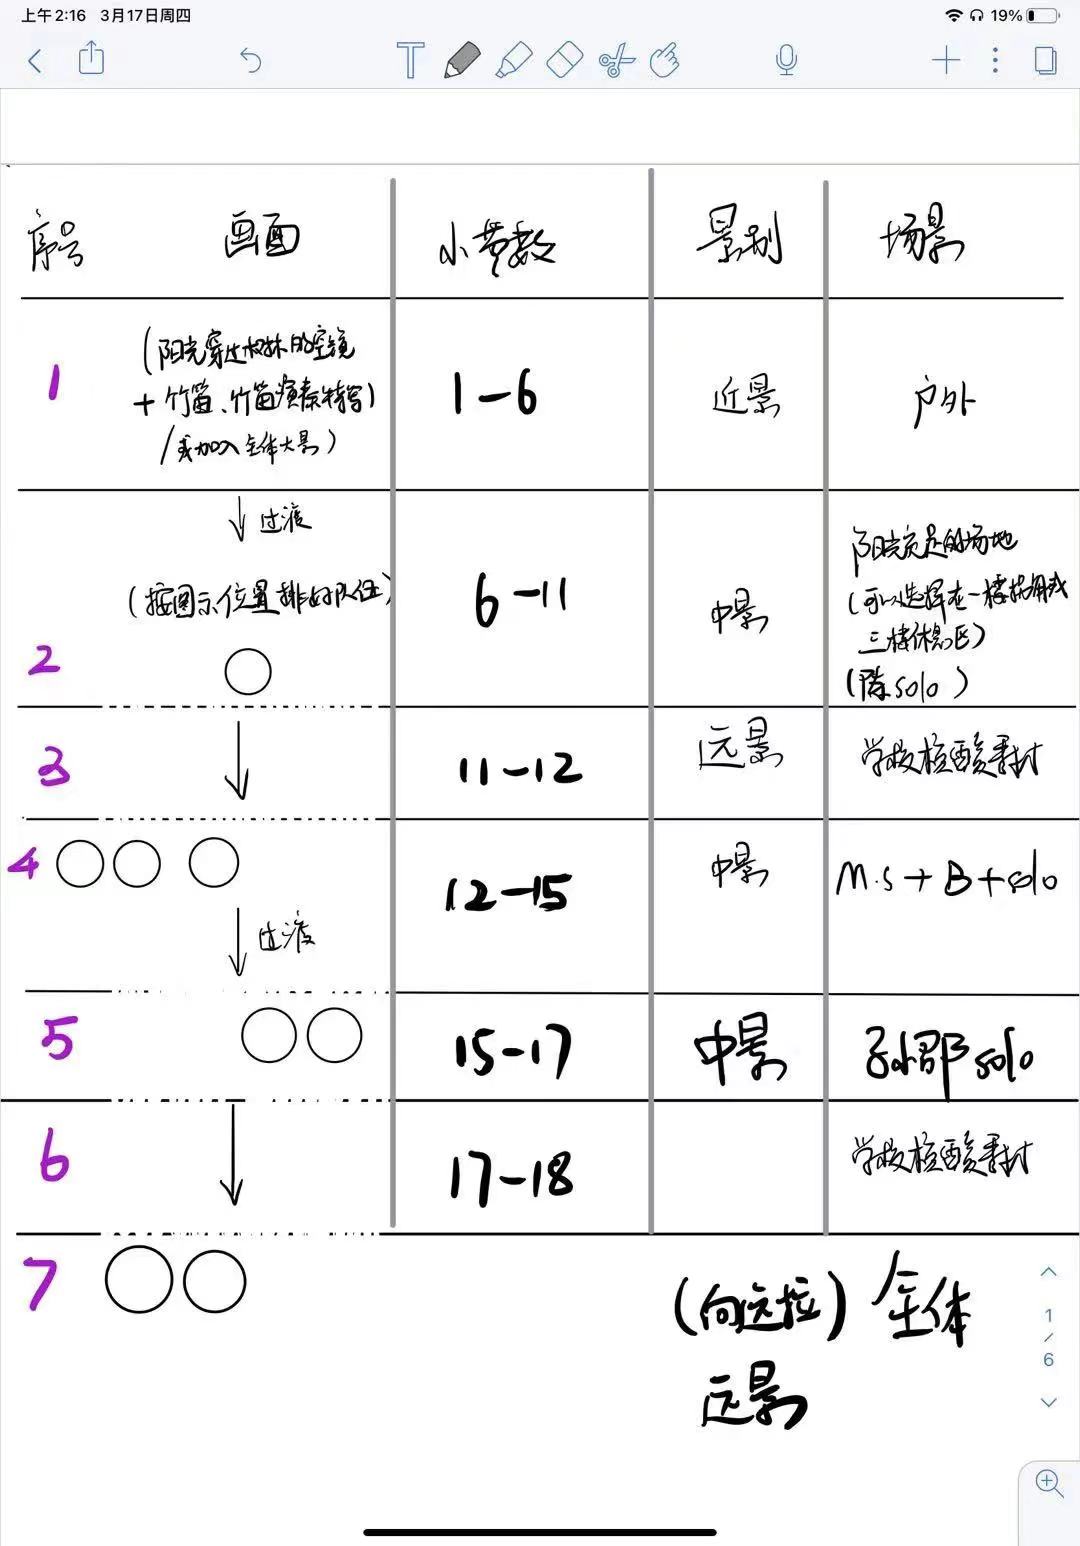 上午2:16 3月17日周四
19%
序号 画面 小节数 景别 场景
1 (阳光穿过树林的空镜
+ 竹笛、竹笛演奏特写)
/或加入全体大景)
1-6 近景 户外
↓过渡
(按图示位置排好队伍)
2 6-11 中景
阳光充足的场地
(可以选择在一楼拐角或
三楼休息区)
(陈solo)
3 11-12 远景 学校核酸
4 12-15 中景 M.S+B+solo
↓过渡
5 15-17 中景 孙邵solo
6 17-18 学校核酸
7 (向远拉) 全体
远景
1
/
6